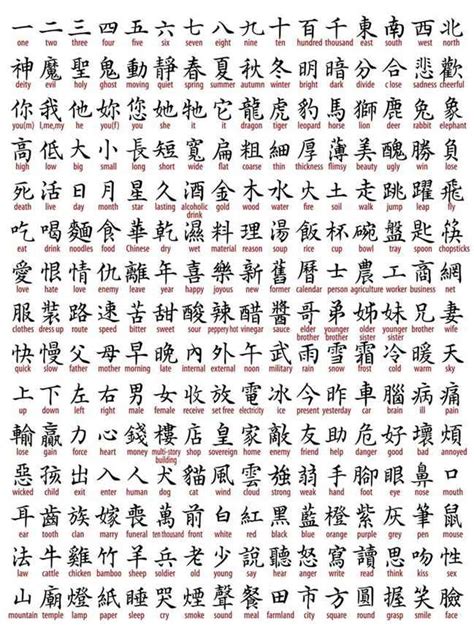 一 二 三 四 五 六 七 八 九 十 百 千 東 南 西 北
one two three four five six seven eight nine ten hundred thousand east south west north
神 魔 聖 鬼 動 靜 春 夏 秋 冬 明 暗 分 合 悲 歡
deity evil holy ghost moving quiet spring summer autumn winter bright dark divide close sadness cheerful
你 我 他 妳 您 她 牠 它 龍 虎 豹 馬 獅 鹿 兔 象
you(m) I,me,my he you(f) you she it it dragon tiger leopard horse lion deer rabbit elephant
高 低 大 小 長 短 寬 扁 粗 細 厚 薄 美 醜 勝 負
high low big small long short wide flat coarse thin thickness flimsy beauty ugly win lose
死 活 日 月 星 久 酒 金 木 水 火 土 走 跳 躍 飛
death live day month star lasting alcoholic drink gold wood water fire soil walk jump leap fly
吃 喝 麵 食 華 乾 濕 料 理 湯 飯 杯 碗 盤 匙 筷
eat drink noodles food Chinese dry wet material reason soup rice cup bowl tray spoon chopsticks
愛 恨 情 仇 離 年 喜 樂 新 舊 曆 士 農 工 商 網
love hate love enemy leave year happy joyous new former calendar person agriculture worker business net
服 裝 路 速 苦 甜 酸 辣 醋 醬 哥 弟 姊 妹 兄 妻
clothes dress up route speed bitter sweet sour peppery hot vinegar sauce elder brother younger brother older sister younger sister brother wife
快 慢 父 母 早 晚 內 外 午 武 雨 雪 霜 冷 暖 天
quick slow father mother morning late internal external noon military rain snow frost cold warm sky
上 下 左 右 男 女 收 放 電 冰 今 昨 車 腦 病 痛
up down left right male female receive set free electricity ice present yesterday car brain ill pain
輸 贏 力 心 錢 樓 店 皇 家 敵 友 助 危 好 壞 煩
lose gain force heart money multi-story building shop sovereign home enemy friend help danger good bad annoyed
惡 孩 出 入 人 犬 貓 風 雲 強 弱 手 腳 眼 鼻 口
wicked child exit enter human dog cat wind cloud strong weak hand foot eye nose mouth
耳 齒 族 嫁 喪 萬 前 白 紅 黑 藍 橙 紫 灰 筆 鼠
ear tooth clan marry funeral ten thousand front white red black blue orange purple grey pen mouse
法 牛 雞 竹 羊 兵 老 少 說 聽 怒 寫 讀 思 吻 性
law cattle chicken bamboo sheep soldier old young say hear anger write read think kiss sex
山 廟 燈 紙 睡 哭 煙 聲 餐 田 市 方 圓 握 笑
mountain temple lamp paper sleep cry smoke sound meal farmland city square round grasp smile face